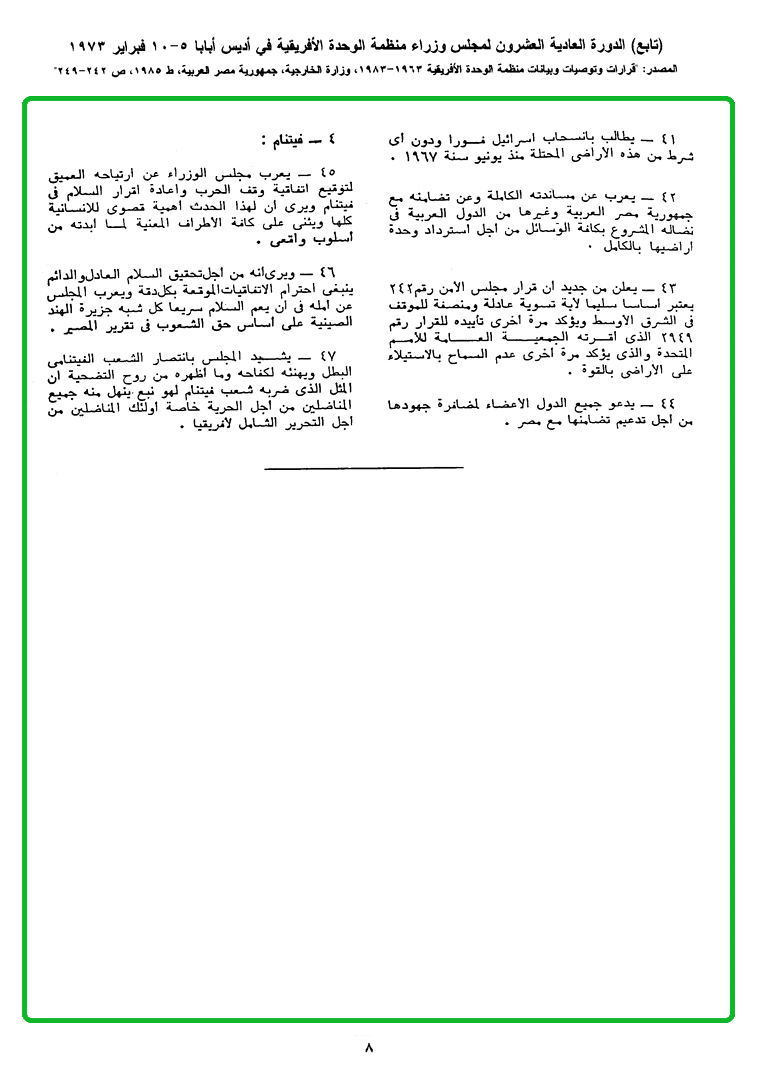 (تابع) الدورة العادية العشرون لمجلس وزراء منظمة الوحدة الأفريقية في أديس أبابا ٥-١٠ فبراير ١٩٧٣
المصدر: "قرارات وتوصيات وبيانات منظمة الوحدة الأفريقية ١٩٦٣-١٩٨٣، وزارة الخارجية، جمهورية مصر العربية، ط ١٩٨٥، ص ٢٤٢-٢٤٩"
٤١ — يطالب بانسحاب اسرائيل فورا ودون أى
شرط من هذه الأراضى المحتلة منذ يونيو سنة ١٩٦٧ .
٤٢ — يعرب عن مساندته الكاملة وعن تضامنه مع
جمهورية مصر العربية وغيرها من الدول العربية فى
نضاله المشروع بكافة الوسائل من أجل استرداد وحدة
اراضيها بالكامل .
٤٣ — يعلن من جديد أن قرار مجلس الأمن رقم ٢٤٢
يعتبر أساسا سليما لأية تسوية عادلة ومنصفة للموقف
فى الشرق الأوسط ويؤكد مرة أخرى تأييده للقرار رقم
٢٩٤٩ الذى اقرته الجمعية العامة للأمم
المتحدة والذى يؤكد مرة أخرى عدم السماح بالاستيلاء
على الأراضى بالقوة .
٤٤ — يدعو جميع الدول الاعضاء لمضافرة جهودها
من أجل تدعيم تضامنها مع مصر .
٤ — فيتنام :
٤٥ — يعرب مجلس الوزراء عن ارتياحه العميق
لتوقيع اتفاقية وقف الحرب واعادة اقرار السلام فى
فيتنام ويرى أن لهذا الحدث أهمية قصوى للانسانية
كلها ويثنى على كافة الأطراف المعنية لما أبدته من
أسلوب واقعى .
٤٦ — ويرى أنه من أجل تحقيق السلام العادل والدائم
ينبغى احترام الاتفاقيات الموقعة بكل دقة ويعرب المجلس
عن أمله فى أن يعم السلام سريعا كل شبه جزيرة الهند
الصينية على أساس حق الشعوب فى تقرير المصير .
٤٧ — يشيد المجلس بانتصار الشعب الفيتنامى
البطل ويهنئه لكفاحه وما أظهره من روح التضحية ان
المثل الذى ضربه شعب فيتنام لهو نبع ينهل منه جميع
المناضلين من أجل الحرية خاصة أولئك المناضلين من
أجل التحرير الشامل لأفريقيا .
٨